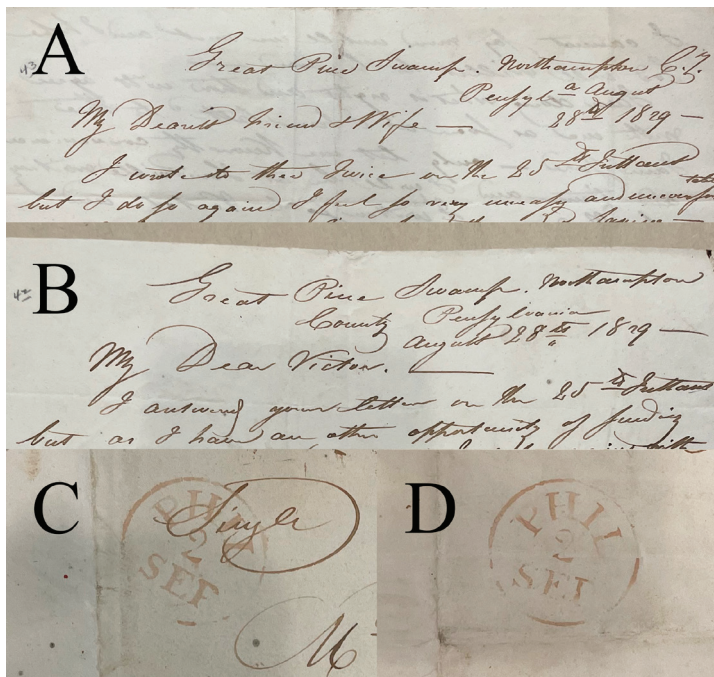 A
43
Great Pine Swamp. Northampton C.y
Pensyl.a August
My Dearest friend & Wife — 28th 1829 —
I wrote to thee Twice on the 25th Instant
but I do so again I feel so very uneasy and uncomfortable
B
42
Great Pine Swamp. Northampton
County Pensylvania
August 28th 1829 —
My Dear Victor. —
I answered your letter on the 25th Instant
but as I have an other opportunity of sending
C
PHIL
2
SEP
Single
M
D
PHIL
2
SEP